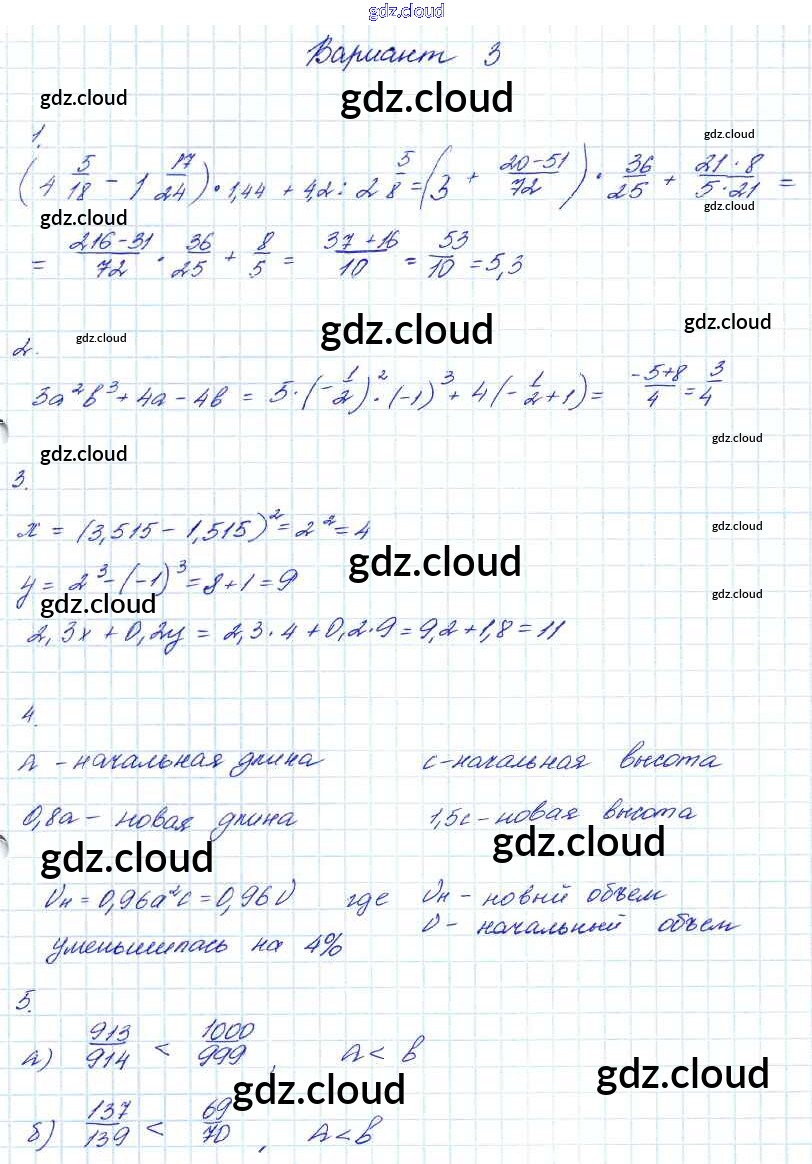 gdz.cloud
Вариант 3
gdz.cloud gdz.cloud
1.
gdz.cloud
(4 5/18 - 1 17/24) • 1,44 + 4,2 : 2 5/8 = (3 + (20-51)/72) • 36/25 + (21•8)/(5•21) =
gdz.cloud gdz.cloud
= (216-31)/72 • 36/25 + 8/5 = (37+16)/10 = 53/10 = 5,3
gdz.cloud gdz.cloud gdz.cloud
2.
5a²b³ + 4a - 4b = 5•(-1/2)²•(-1)³ + 4(-1/2+1) = (-5+8)/4 = 3/4
gdz.cloud gdz.cloud
3.
x = (3,515 - 1,515)² = 2² = 4
gdz.cloud
gdz.cloud
y = 2³ - (-1)³ = 8 + 1 = 9
gdz.cloud gdz.cloud
2,3x + 0,2y = 2,3•4 + 0,2•9 = 9,2 + 1,8 = 11
4.
a - начальная длина c - начальная высота
0,8a - новая длина 1,5c - новая высота
gdz.cloud gdz.cloud
Vн = 0,96a²c = 0,96V где Vн - новый объем
уменьшилась на 4% V - начальный объем
5.
а) 913/914 < 1000/999, A < B
gdz.cloud gdz.cloud
б) 137/139 < 69/70, A < B